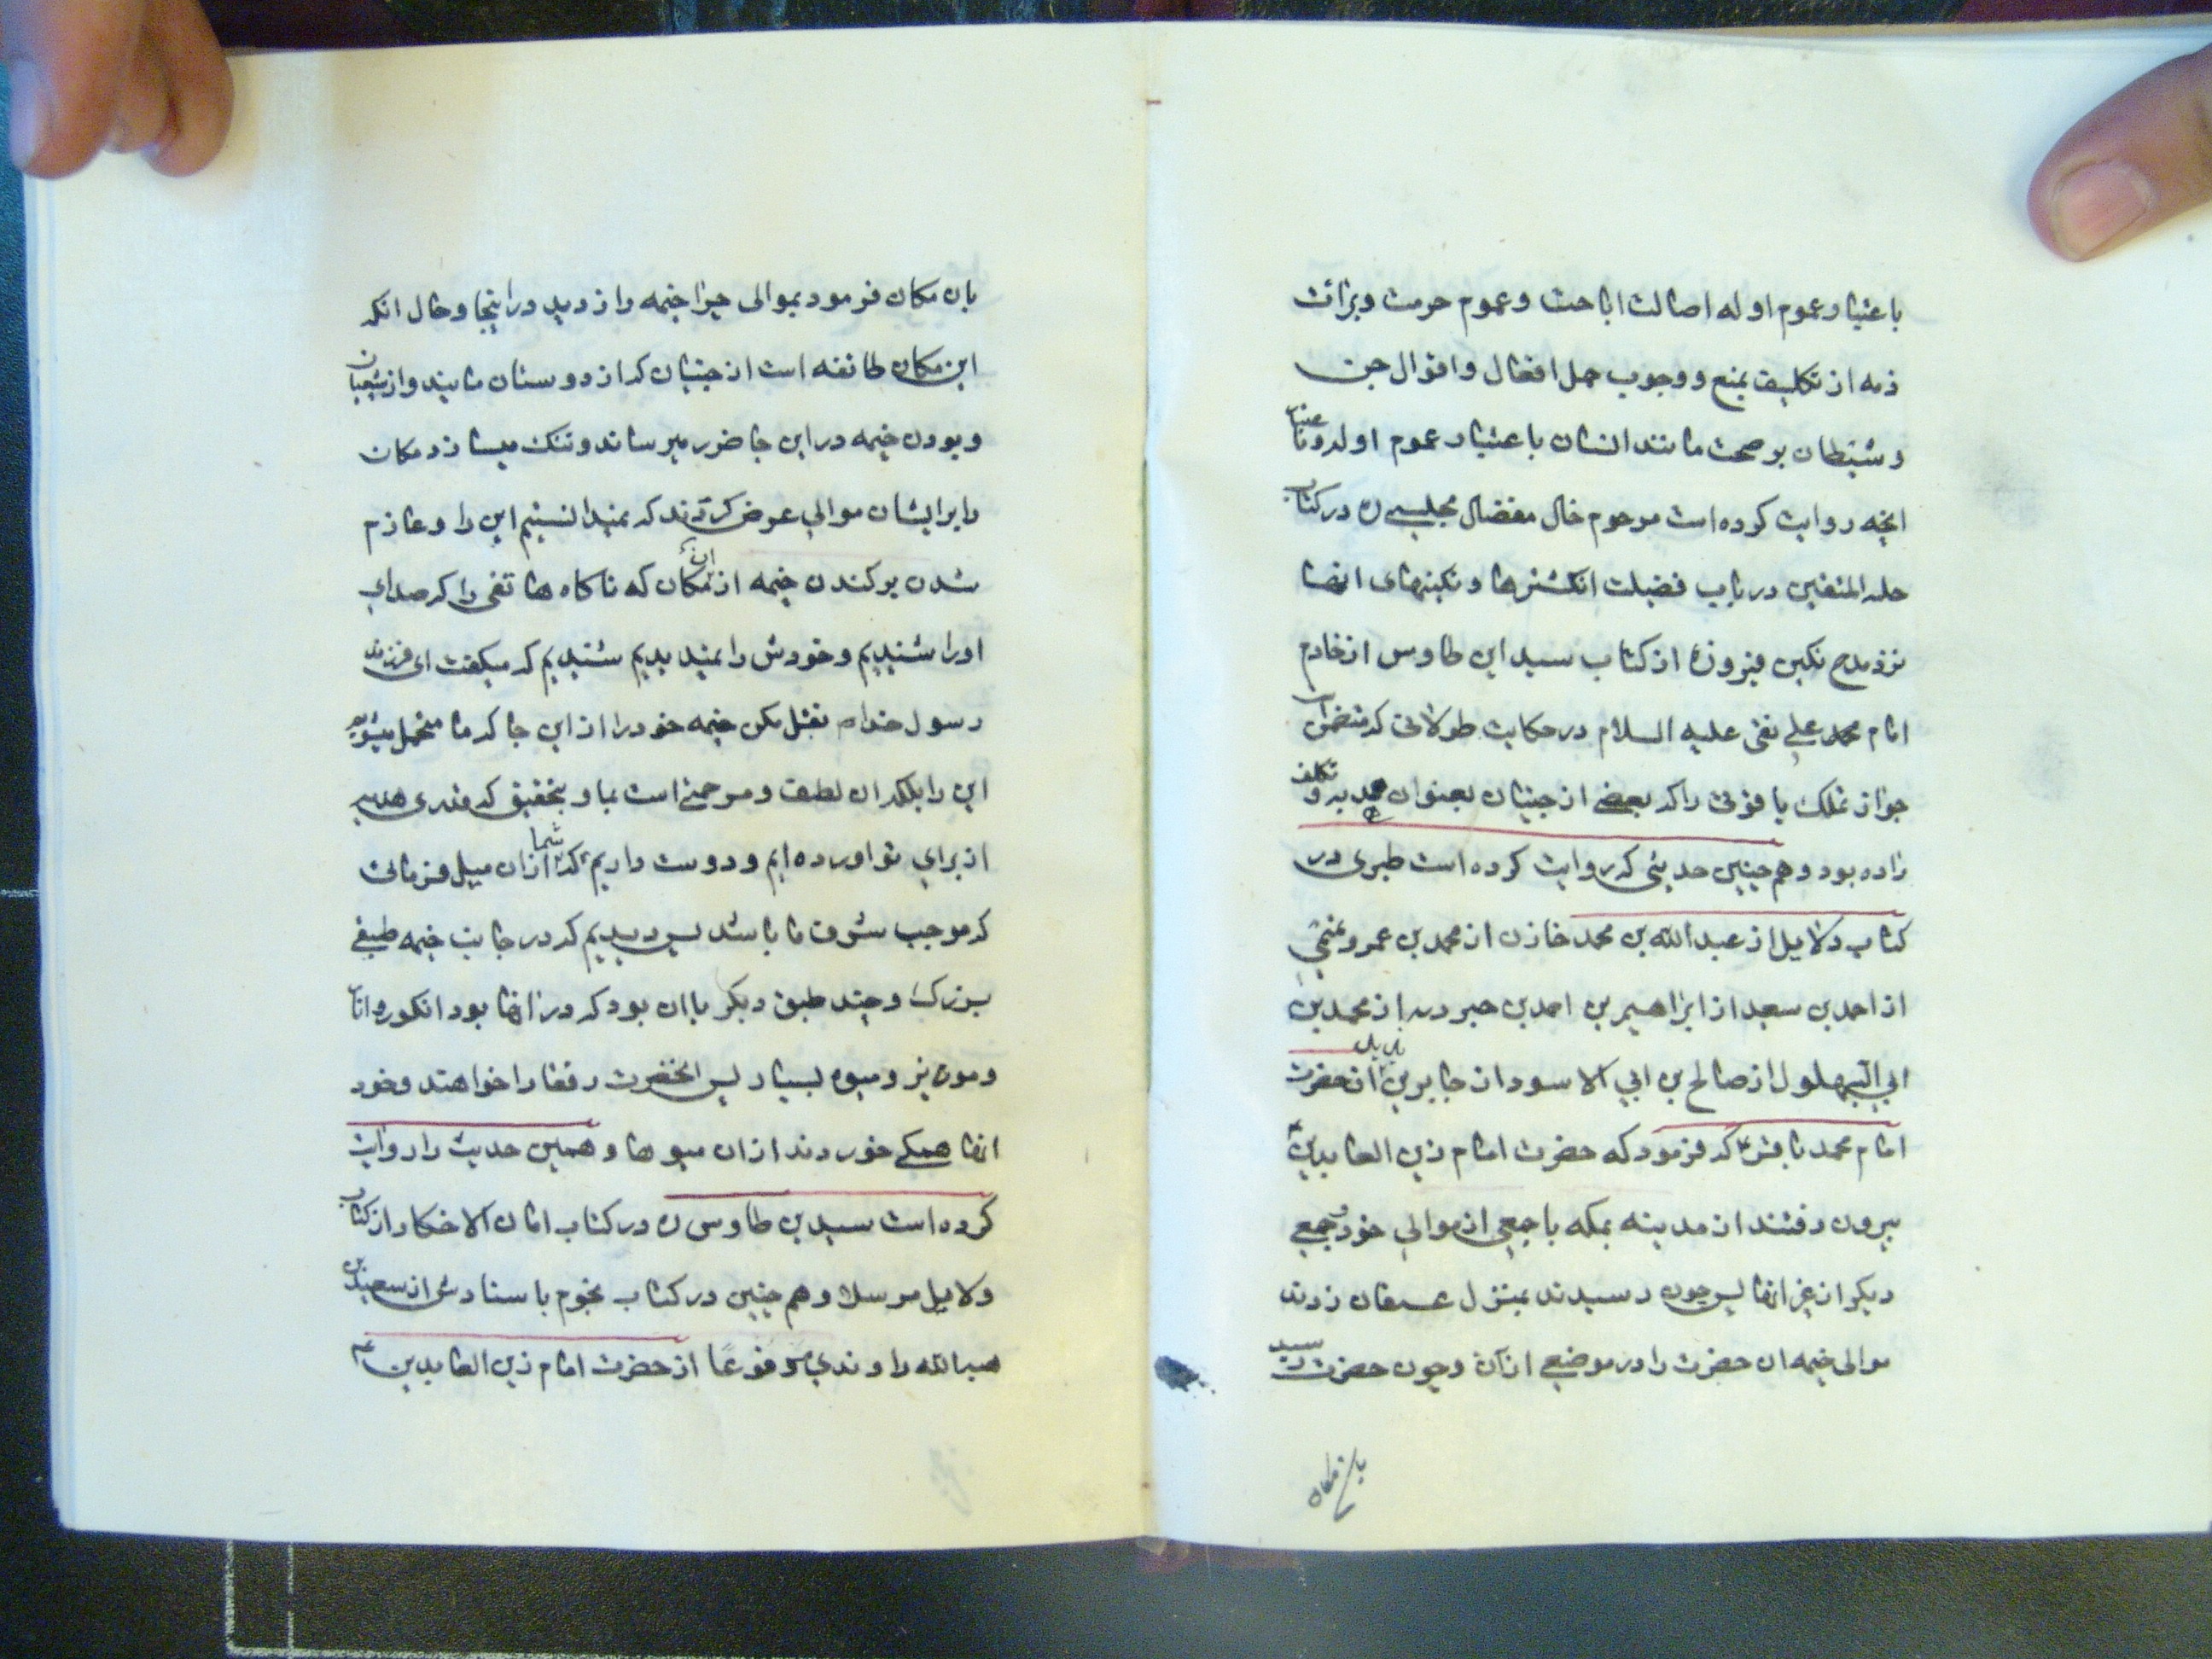 باعتبار عموم ادله اصالت اباحت و عموم حرمت و برائت
ذمه از تکلیف بمنع و وجوب حمل افعال و اقوال جن
و شیطان بر صحت مانند انسان باعتبار عموم ادله و
انچه روایت کرده است مرحوم خال مفضال مجلسی ره در کتاب
حلیه المتقین در باب فضیلت انکشترها و نکینهای انها
نزد مدح نکین فیروزه از کتاب سید ابن طاوس از خادم
امام علی نقی علیه السلام در حکایت طولانی که متضمن است
جواز تملک یاقوتی را که بعضی از جنیان بعنوان هدیه و تکلف
داده بود و هم چنین حدیثی که روایت کرده است طبری در
کتاب دلایل از عبدالله بن محمد خازن از محمد بن عمرو تمیمی
از احمد بن سعید از ابراهیم بن احمد بن از محمد بن
ابی البهلول از صالح بن ابی الاسود از جابر بن یزید از حضرت
امام محمد باقر ع که فرمود که حضرت امام زین العابدین ع
بیرون رفتند از مدینه بمکه با جمعی از موالی خود و جمعی
دیکر از غیر انها پس چون رسیدند بمنزل عسفان زدند
موالی خیمه ان حضرت را در موضعی از آن و چون حضرت رسید
بان مکان
بان مکان فرمود بموالی چرا خیمه را زدید در اینجا و حال انکه
این مکان طائفه است از جنیان که از دوستان مایند و از شیعیان
و بودن خیمه در این جا ضرر میرساند و تنک میسازد مکان
را بر ایشان موالی عرض کردند که نمیدانستیم این را و عازم
شدن بر کندن خیمه از ان مکان که ناکاه هاتفی را که صدای
او را شنیدیم و خودش را نمیدیدیم شنیدیم که میکفت ای فرزند
رسول خدا م نقل مکن خیمه خود را از این جا که ما متحمل میشویم
این را بلکه ان لطف و مرحمتی است بما و بتحقیق که قدری هدیه
از برای تو اورده ایم و دوست داریم که شما از ان میل فرمائی
که موجب شرف ما باشد پس دیدیم که در جانب خیمه طبقی
بزرک و چند طبق دیکر با ان بود که در انها بود انکور و انار
و موز و میوه بسیار پس انحضرت رفقا را خواهند و خود
انها همکی خوردند از ان میوها و همین حدیث را روایت
کرده است سید بن طاوس ره در کتاب امان الاخطار از کتاب
دلایل مرسلا و هم چنین در کتاب نجوم باسنادش از سعید بن
هبة الله راوندی مرفوعًا از حضرت امام زین العابدین ع